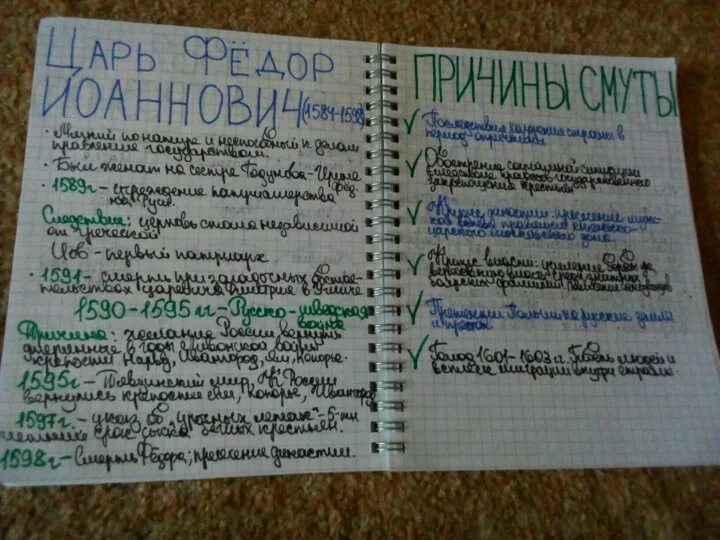 ЦАРЬ ФЁДОР
ИОАННОВИЧ (1584-1598)
· Мягкий по натуре и неспособный к делам
правления государством.
· Был женат на сестре Годунова - Ирине
· 1589г - учреждение патриаршества
на Руси.
Следствие: церковь стала независимой
от греческой
Иов - первый патриарх.
· 1591 - смерть при загадочных обстоя-
тельствах царевича Дмитрия в Угличе
1590-1595 гг - Русско-шведская
война
Причина: желание России вернуть
утерянные в годы Ливонской войны
крепости Нарву, Ивангород, Ям, Копорье.
1595г - Тявзинский мир. К России
вернулись крепости Ям, Копорье, Ивангород
1597г. - указ об "урочных летах" - 5-ти
летний срок сыска беглых крестьян.
1598г - Смерть Фёдора; пресечение династии.
ПРИЧИНЫ СМУТЫ
✓ Последствия разорения страны в
период опричнины
✓ Обострение социальной ситуации
вследствие процесса государственного
закрепощения крестьян
✓ Кризис династии: пресечение
царского московского дома.
✓ Кризис власти: усиление борьбы за
верховную власть между знатными
боярскими фамилиями. Появление самозванцев
✓ Претензии Польши на русские земли
и престол.
✓ Голод 1601-1603 гг. Гибель людей и
всплеск миграции внутри страны.